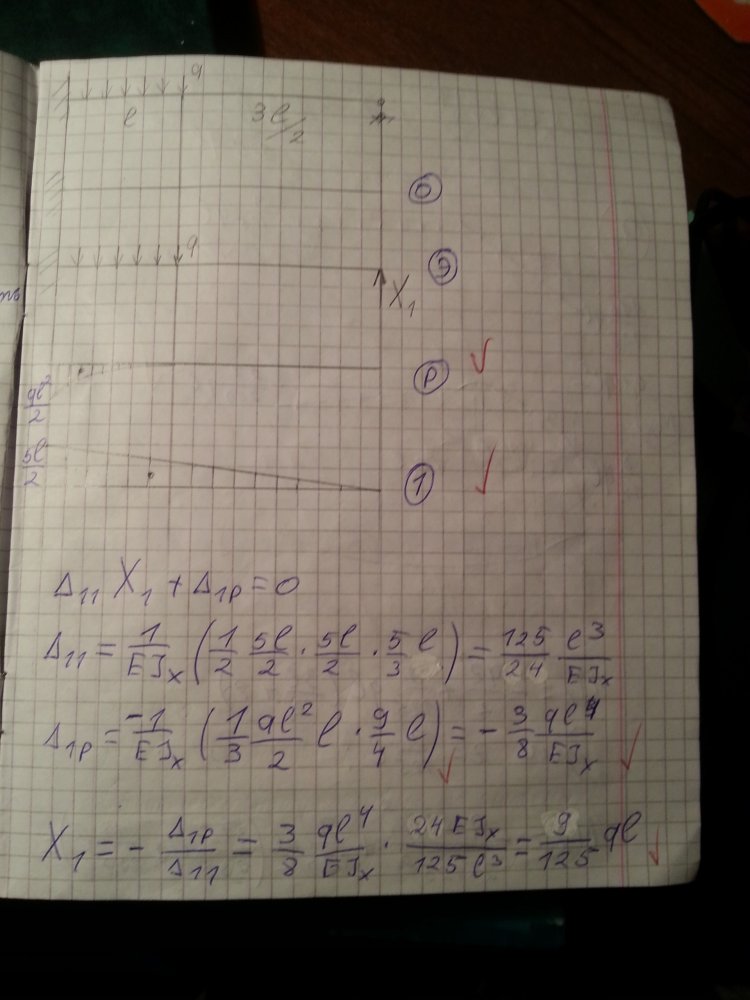 q
l 3l/2
0
q
Э
X₁
ql²/2 P
5l/2 1
Δ₁₁ X₁ + Δ₁P = 0
Δ₁₁ = 1/EJₓ (1/2 5l/2 · 5l/2 · 5/3 l) = 125/24 l³/EJₓ
Δ₁P = -1/EJₓ (1/3 ql²/2 l · 9/4 l) = - 3/8 ql⁴/EJₓ
X₁ = - Δ₁P/Δ₁₁ = 3/8 ql⁴/EJₓ · 24EJₓ/125l³ = 9/125 ql